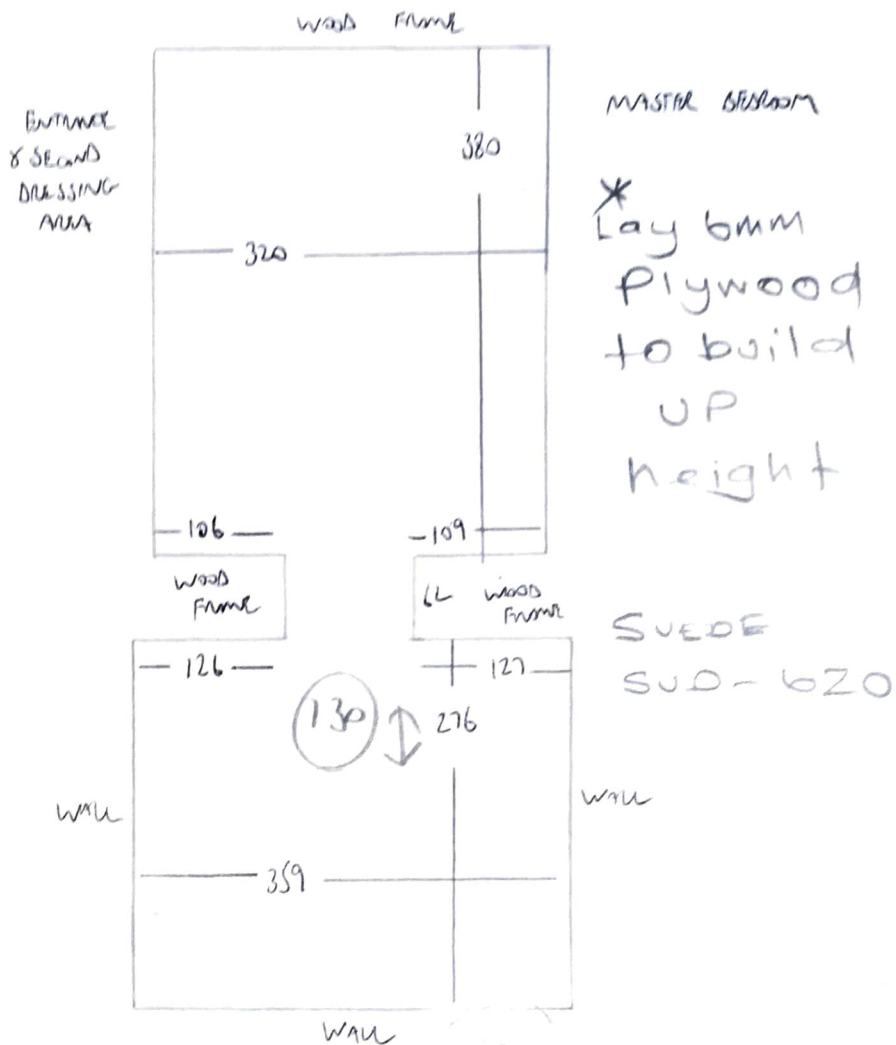 WOOD FRAME
MASTER BEDROOM
ENTRANCE
& SECOND
DRESSING
AREA
380
320
*
Lay 6mm
Plywood
to build
UP
height
106
109
WOOD
FRAME
62
WOOD
FRAME
SUEDE
SUD-620
126
127
130
276
WALL
WALL
359
WALL